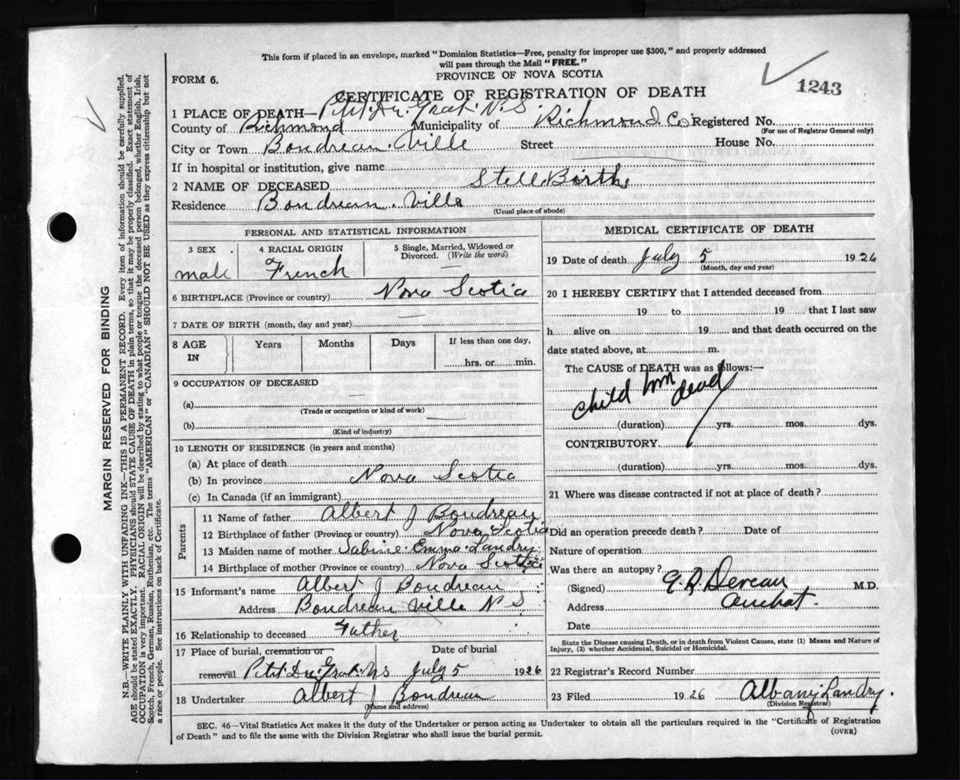 This form if placed in an envelope, marked "Dominion Statistics—Free, penalty for improper use $300," and properly addressed
will pass through the Mail "FREE."
FORM 6.
PROVINCE OF NOVA SCOTIA
1243
CERTIFICATE OF REGISTRATION OF DEATH
1 PLACE OF DEATH—Petit De Grat N.S.
County of Richmond Municipality of Richmond Co Registered No.
(For use of Registrar General only)
City or Town Boudreau Ville Street House No.
If in hospital or institution, give name
2 NAME OF DECEASED Stell Birth
Residence Boudreau Ville
(Usual place of abode)
PERSONAL AND STATISTICAL INFORMATION
3 SEX male
4 RACIAL ORIGIN French
5 Single, Married, Widowed or Divorced. (Write the word) —
6 BIRTHPLACE (Province or country) Nova Scotia
7 DATE OF BIRTH (month, day and year) —
8 AGE IN Years Months Days If less than one day, hrs. or min.
9 OCCUPATION OF DECEASED
(a) —
(Trade or occupation or kind of work)
(b) —
(Kind of industry)
10 LENGTH OF RESIDENCE (in years and months)
(a) At place of death
(b) In province Nova Scotia
(c) In Canada (if an immigrant)
Parents
11 Name of father Albert J Boudreau
12 Birthplace of father (Province or country) Nova Scotia
13 Maiden name of mother Sabine Emma Landry
14 Birthplace of mother (Province or country) Nova Scotia
15 Informant's name Albert J Boudreau
Address Boudreau Ville N S
16 Relationship to deceased Father
17 Place of burial, cremation or removal Petit De Grat NS
Date of burial July 5 1926
18 Undertaker Albert J Boudreau
(Name and address)
MEDICAL CERTIFICATE OF DEATH
19 Date of death July 5 1926
(Month, day and year)
20 I HEREBY CERTIFY that I attended deceased from
19 to 19 that I last saw
h alive on 19 and that death occurred on
date stated above, at m.
The CAUSE of DEATH was as follows:—
child born dead
(duration) yrs. mos. dys.
CONTRIBUTORY
(duration) yrs. mos. dys.
21 Where was disease contracted if not at place of death?
Did an operation precede death? Date of
Nature of operation
Was there an autopsy?
(Signed) M.D.
Address Arichat
Date
State the Disease causing Death, or in death from Violent Causes, state (1) Means and Nature of
Injury, (2) whether Accidental, Suicidal or Homicidal.
22 Registrar's Record Number
23 Filed 1926 Albany Landry
(Division Registrar)
SEC. 46—Vital Statistics Act makes it the duty of the Undertaker or person acting as Undertaker to obtain all the particulars required in the "Certificate of Registration
of Death" and to file the same with the Division Registrar who shall issue the burial permit.
(OVER)
MARGIN RESERVED FOR BINDING
N.B.—WRITE PLAINLY WITH UNFADING INK—THIS IS A PERMANENT RECORD. Every item of information should be carefully supplied.
AGE should be stated EXACTLY. PHYSICIANS should STATE CAUSE OF DEATH in plain terms, so that it may be properly classified. Exact statement of
OCCUPATION is very important. RACIAL ORIGIN will be described by stating to what people or tongue the deceased person belonged, whether English, Irish,
Scotch, French, German, Russian, Ruthenian, etc. The terms "AMERICAN" or "CANADIAN" SHOULD NOT BE USED as they express citizenship but not
a race or people. See instructions on back of Certificate.